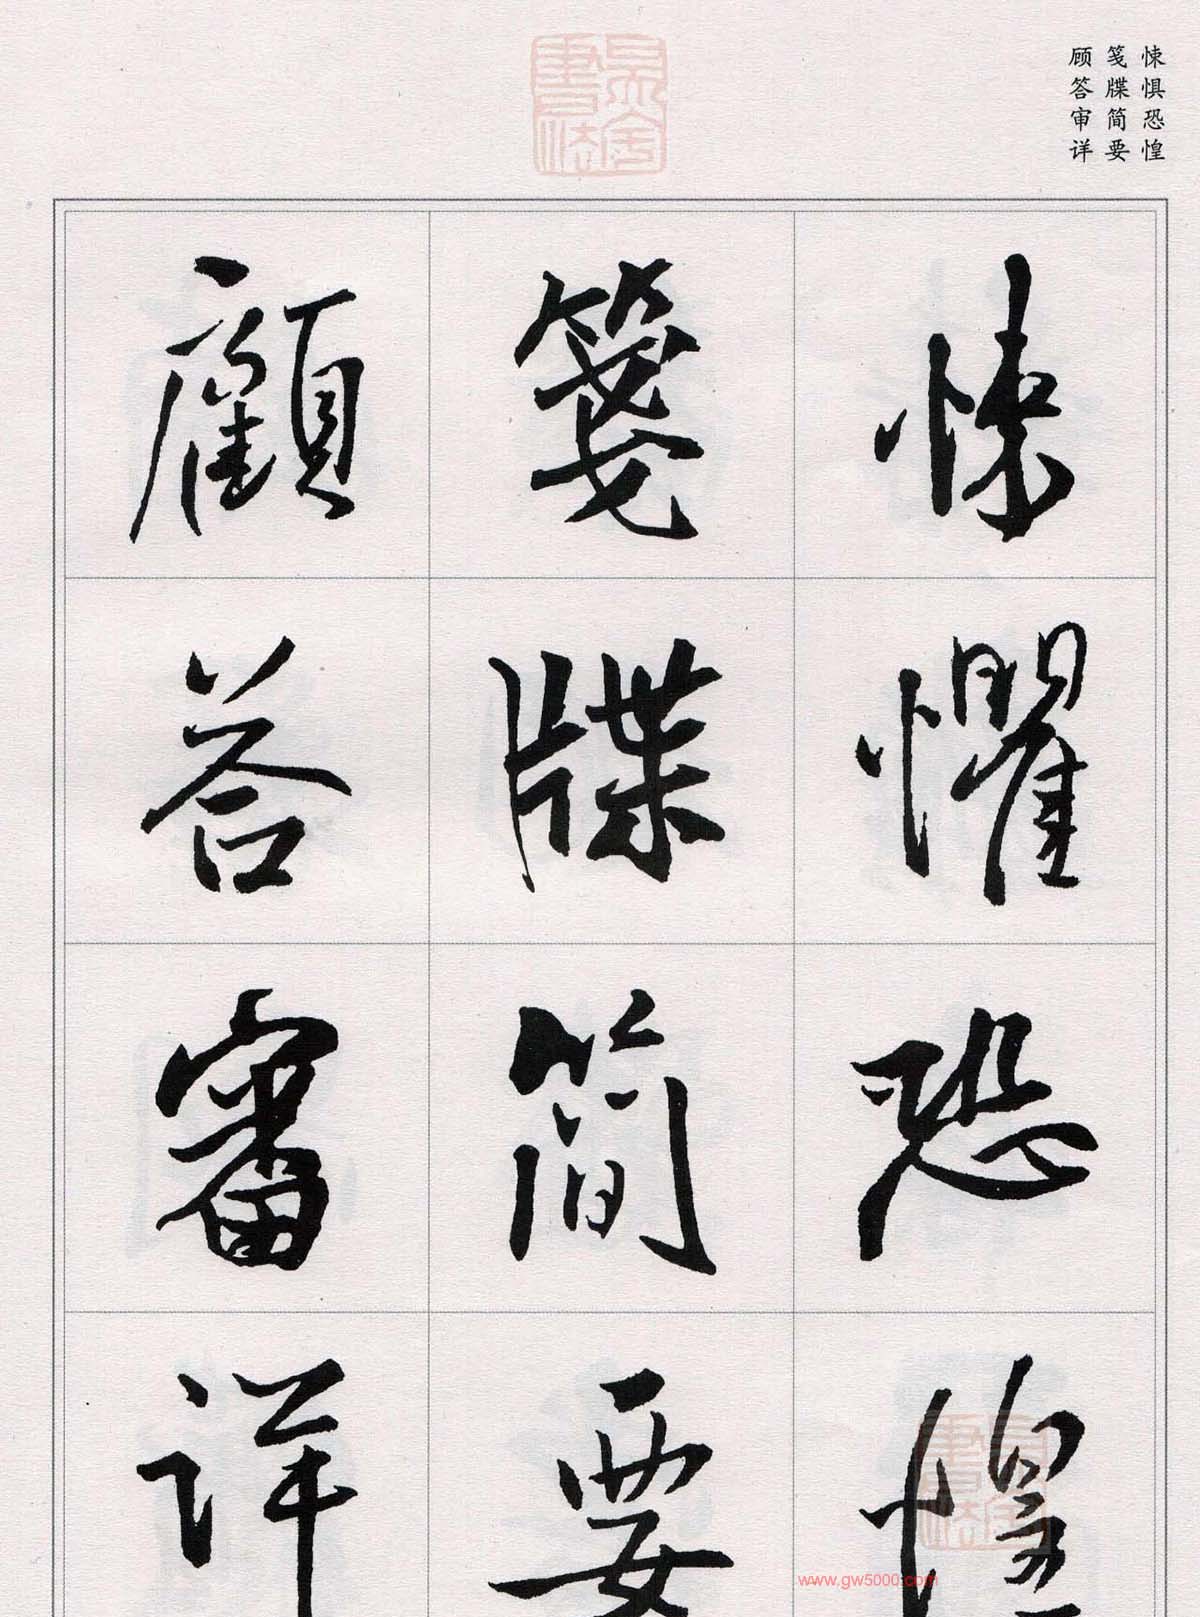 悚惧恐惶
笺牒简要
顾答审详
悚懼恐惶
箋牒簡要
顧答審詳
www.gw5000.com